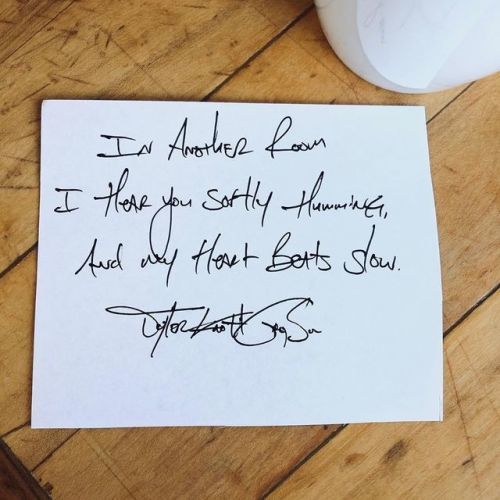 In Another Room
I Hear you softly Humming,
And my Heart Beats slow.
Tyler Knott Gregson